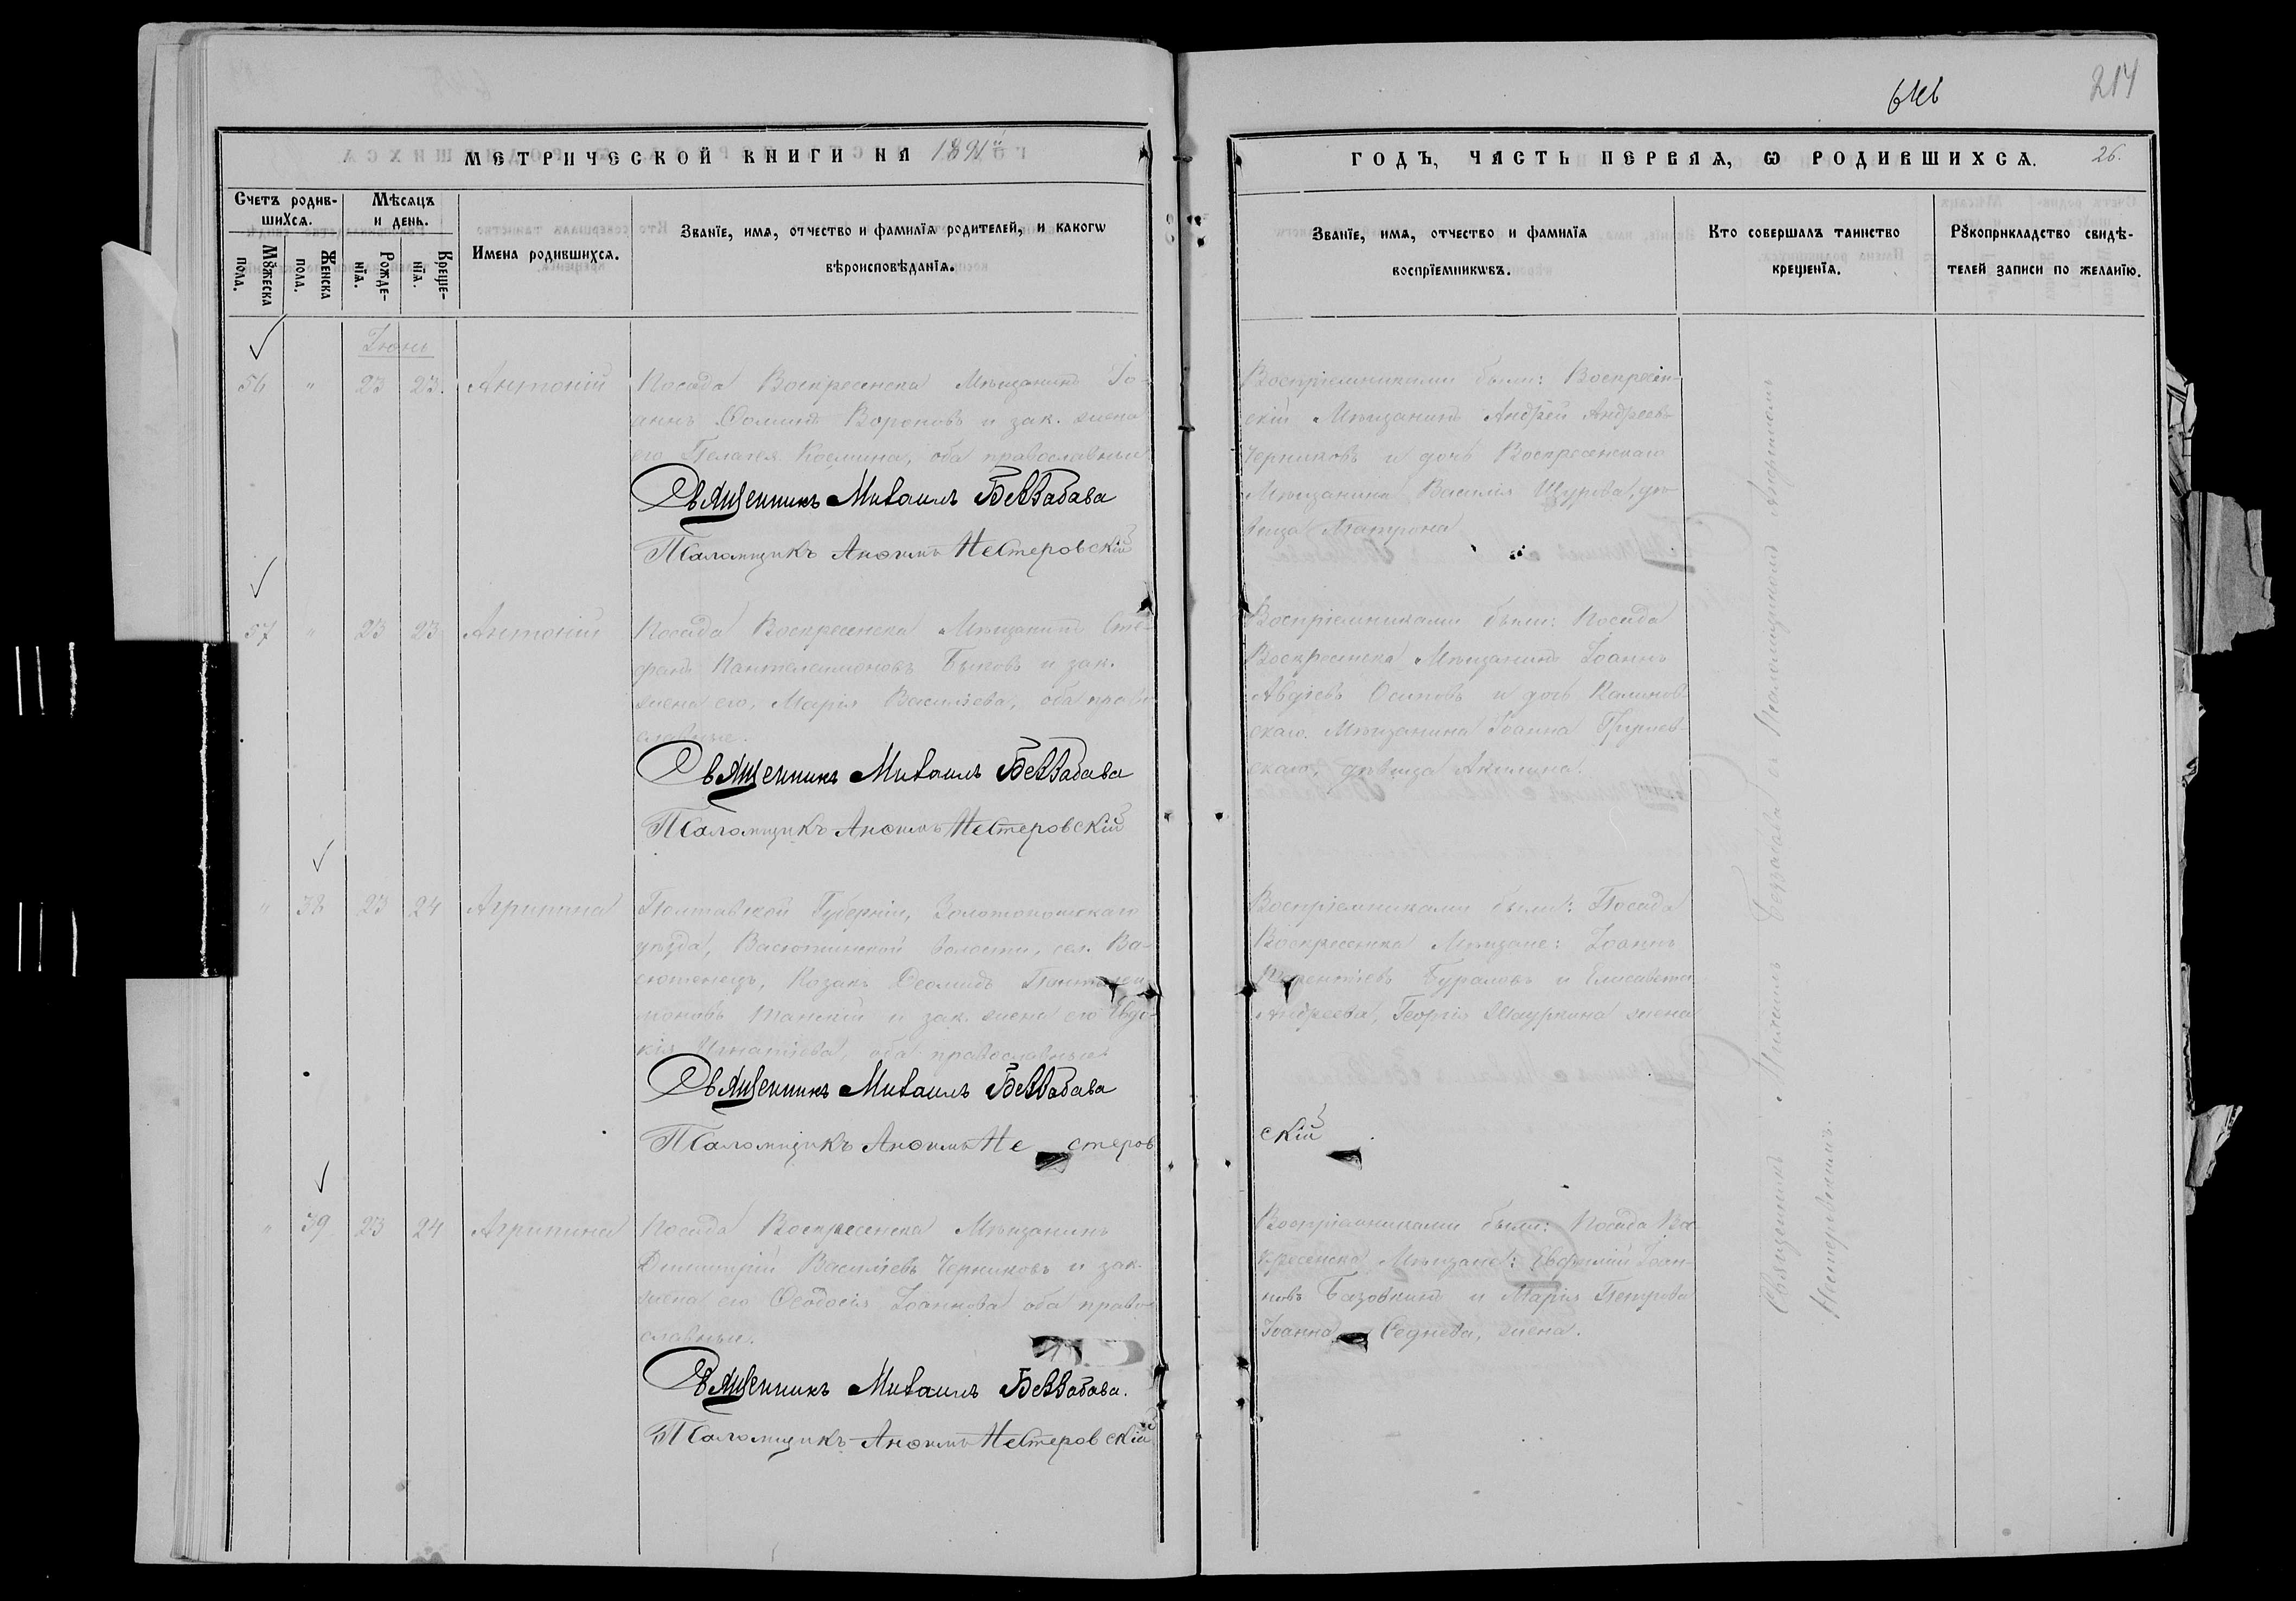 217
26.
МЕТРИЧЕСКОЙ КНИГИ НА 1891й
ГОДЪ, ЧАСТЬ ПЕРВАЯ, Ѡ РОДИВШИХСѦ.
Счетъ родив-
шихсѧ.
Мꙋжеска
пола.
Женска
пола.
Мѣсѧцъ
и день.
Рожде-
нїѧ.
Креще-
нїѧ.
Имена родившихсѧ.
Званїе, имѧ, отчество и фамилїѧ родителей, и какогѡ
вѣроисповѣданїѧ.
Званїе, имѧ, отчество и фамилїѧ
воспрїемникѡвъ.
Кто совершалъ таинство
крещенїѧ.
Рꙋкоприкладство свидѣ-
телей записи по желанїю.
Іюнь
56 " 23 23. Антоній
Посада Воскресенска Мѣщанинъ Іо-
аннъ Ѳоминъ Вороновъ и зак. жена
его Пелагея Козмина, оба православныи
Священникъ Михаилъ Беззабава
Псаломщикъ Анѳимъ Нестеровскій
Воспріемниками были: Воскресен-
скій Мѣщанинъ Андрей Андреевъ
Черниковъ и дочь Воскресенскаго
Мѣщанина Василія Щурова, дѣ-
вица Матрона
57 " 23 23 Антоній
Посада Воскресенска Мѣщанинъ Сте-
фанъ Пантелеимоновъ Быковъ и зак.
жена его, Марія Васильева, оба право-
славные.
Священникъ Михаилъ Беззабава
Псаломщикъ Анѳимъ Нестеровскій
Воспріемниками были: Посада
Воскресенска Мѣщанинъ Іоаннъ
Авдіевъ Осиповъ и дочь Калинов-
скаго Мѣщанина Іоанна
скаго, дѣвица Акилина.
" 38 23 24 Агрипина
Полтавской Губерніи, Золотоношскаго
уѣзда, Васютинской волости, сел. Ва-
сютенецъ, Козакъ Деомидъ Пантелеи-
моновъ и зак. жена его Евдо-
кія Игнатіева, оба православныи
Священникъ Михаилъ Беззабава
Псаломщикъ Анѳимъ Нестеров
скій
Воспріемниками были: Посада
Воскресенска Мѣщане: Іоаннъ
Терентіевъ Бураловъ и Елисавета
Андреева, Георгія жена
" 39 23 24 Агрипина
Посада Воскресенска Мѣщанинъ
Димитрій Василіевъ Черниковъ и зак.
жена его Ѳеодосія Іоаннова оба право-
славныи.
Священникъ Михаилъ Беззабава.
Псаломщикъ Анѳимъ Нестеровскій
Воспріемниками были: Посада Вос-
кресенска Мѣщане: Евфимій Іоан-
новъ Базовкинъ и Марія Петрова
Іоанна Седнева, жена.
Священникъ Михаилъ Беззабава съ Псаломщикомъ Анѳимомъ
Нестеровскимъ.